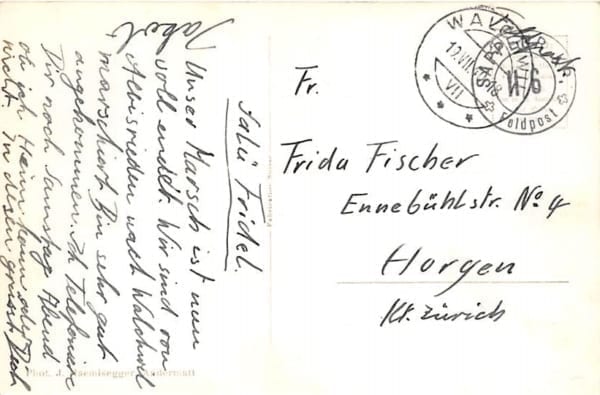 Salü Fridel.
Unser Marsch ist nun
voll endet. Wir sind von
Albisrieden nach Walchwil
marschiert. Bin sehr gut
angekommen. Ich Telefoniere
Dir noch Samstag Abend
ob ich Heim kann oder
nicht. In diesem grüsst Dich
Jakob
Feldpost
WA
12.VII.
VII
Feldpost
Fr.
Frida Fischer
Ennebühlstr. No 4
Horgen
Kt. Zürich
Phot. J. Andermatt